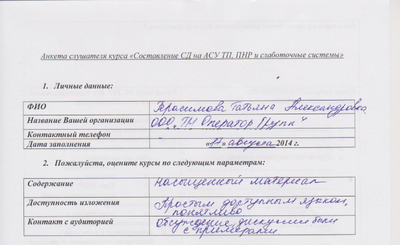 Анкета слушателя курса «Составление СД на АСУ ТП, ПНР и слаботочные системы»
1. Личные данные:
ФИО Герасимова Татьяна Александровна
Название Вашей организации ООО „ТН Оператор Групп“
Контактный телефон -
Дата заполнения «14» августа 2014 г.
2. Пожалуйста, оцените курсы по следующим параметрам:
Содержание насыщенной материал
Доступность изложения Простым доступным языком,
понятливо
Контакт с аудиторией Обсуждение дискуссии были
с примерами